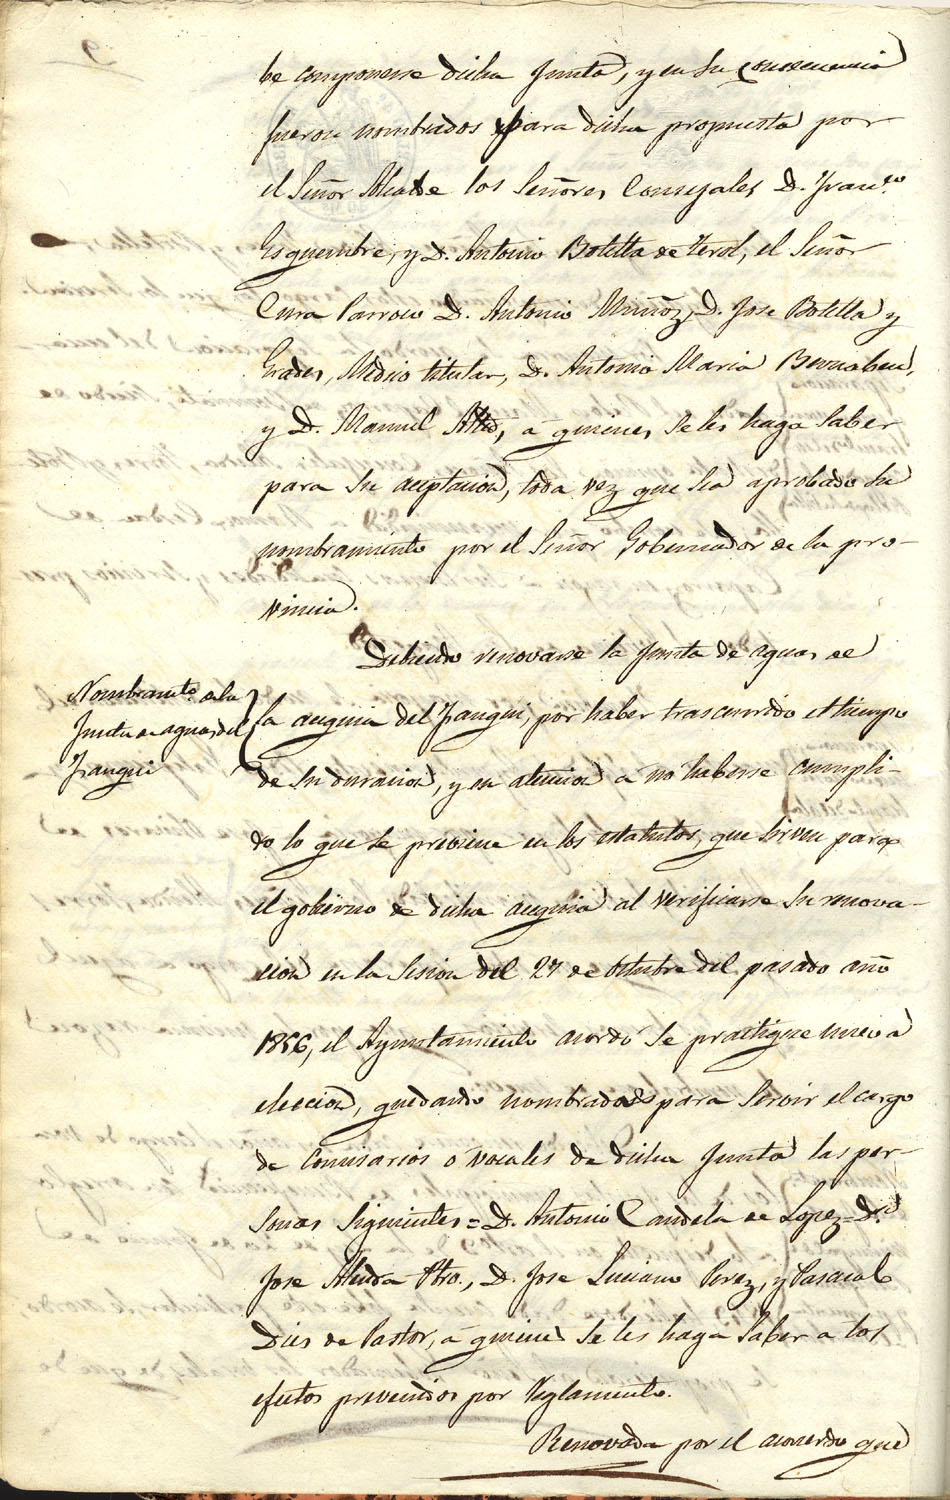 be componerse dicha Junta, y en su consecuencia
fueron nombrados para dicha propuesta por
el Señor Alcalde los Señores Consejales D. Franco.
Esquembre, y D. Antonio Botella de Terol, el Señor
Cura Parroco D. Antonio Muñoz, D. Jose Botella y
Grades, Medico titular, D. Antonio Maria Bernabeu,
y D. Manuel, a quienes se les haga saber
para su aceptacion, toda vez que sea aprobado su
nombramiento por el Señor Gobernador de la pro-
vincia.
Debiendo renovarse la Junta de aguas de
Nombramto. de la
Junta de aguas del
Fanqui
la acequia del Fanqui, por haber trascurrido el tiempo
de su duracion, y en atencion a no haberse cumpli-
do lo que se previene en los estatutos, que sirven para
el gobierno de dicha acequia al verificarse su renova-
cion en la Sesion del 27 de Octubre del pasado año
1856, el Ayuntamiento acordó se practique nueva
eleccion, quedando nombrados para servir el cargo
de Comisarios o vocales de dicha Junta las per-
sonas siguientes = D. Antonio Candela de Lopez = Dr.
Jose Pbro., D. Jose Luciano Perez, y Pascual
Dies de Pastor, a quienes se les haga saber a los
efectos prevenidos por Reglamento.
Renovada por el acuerdo que